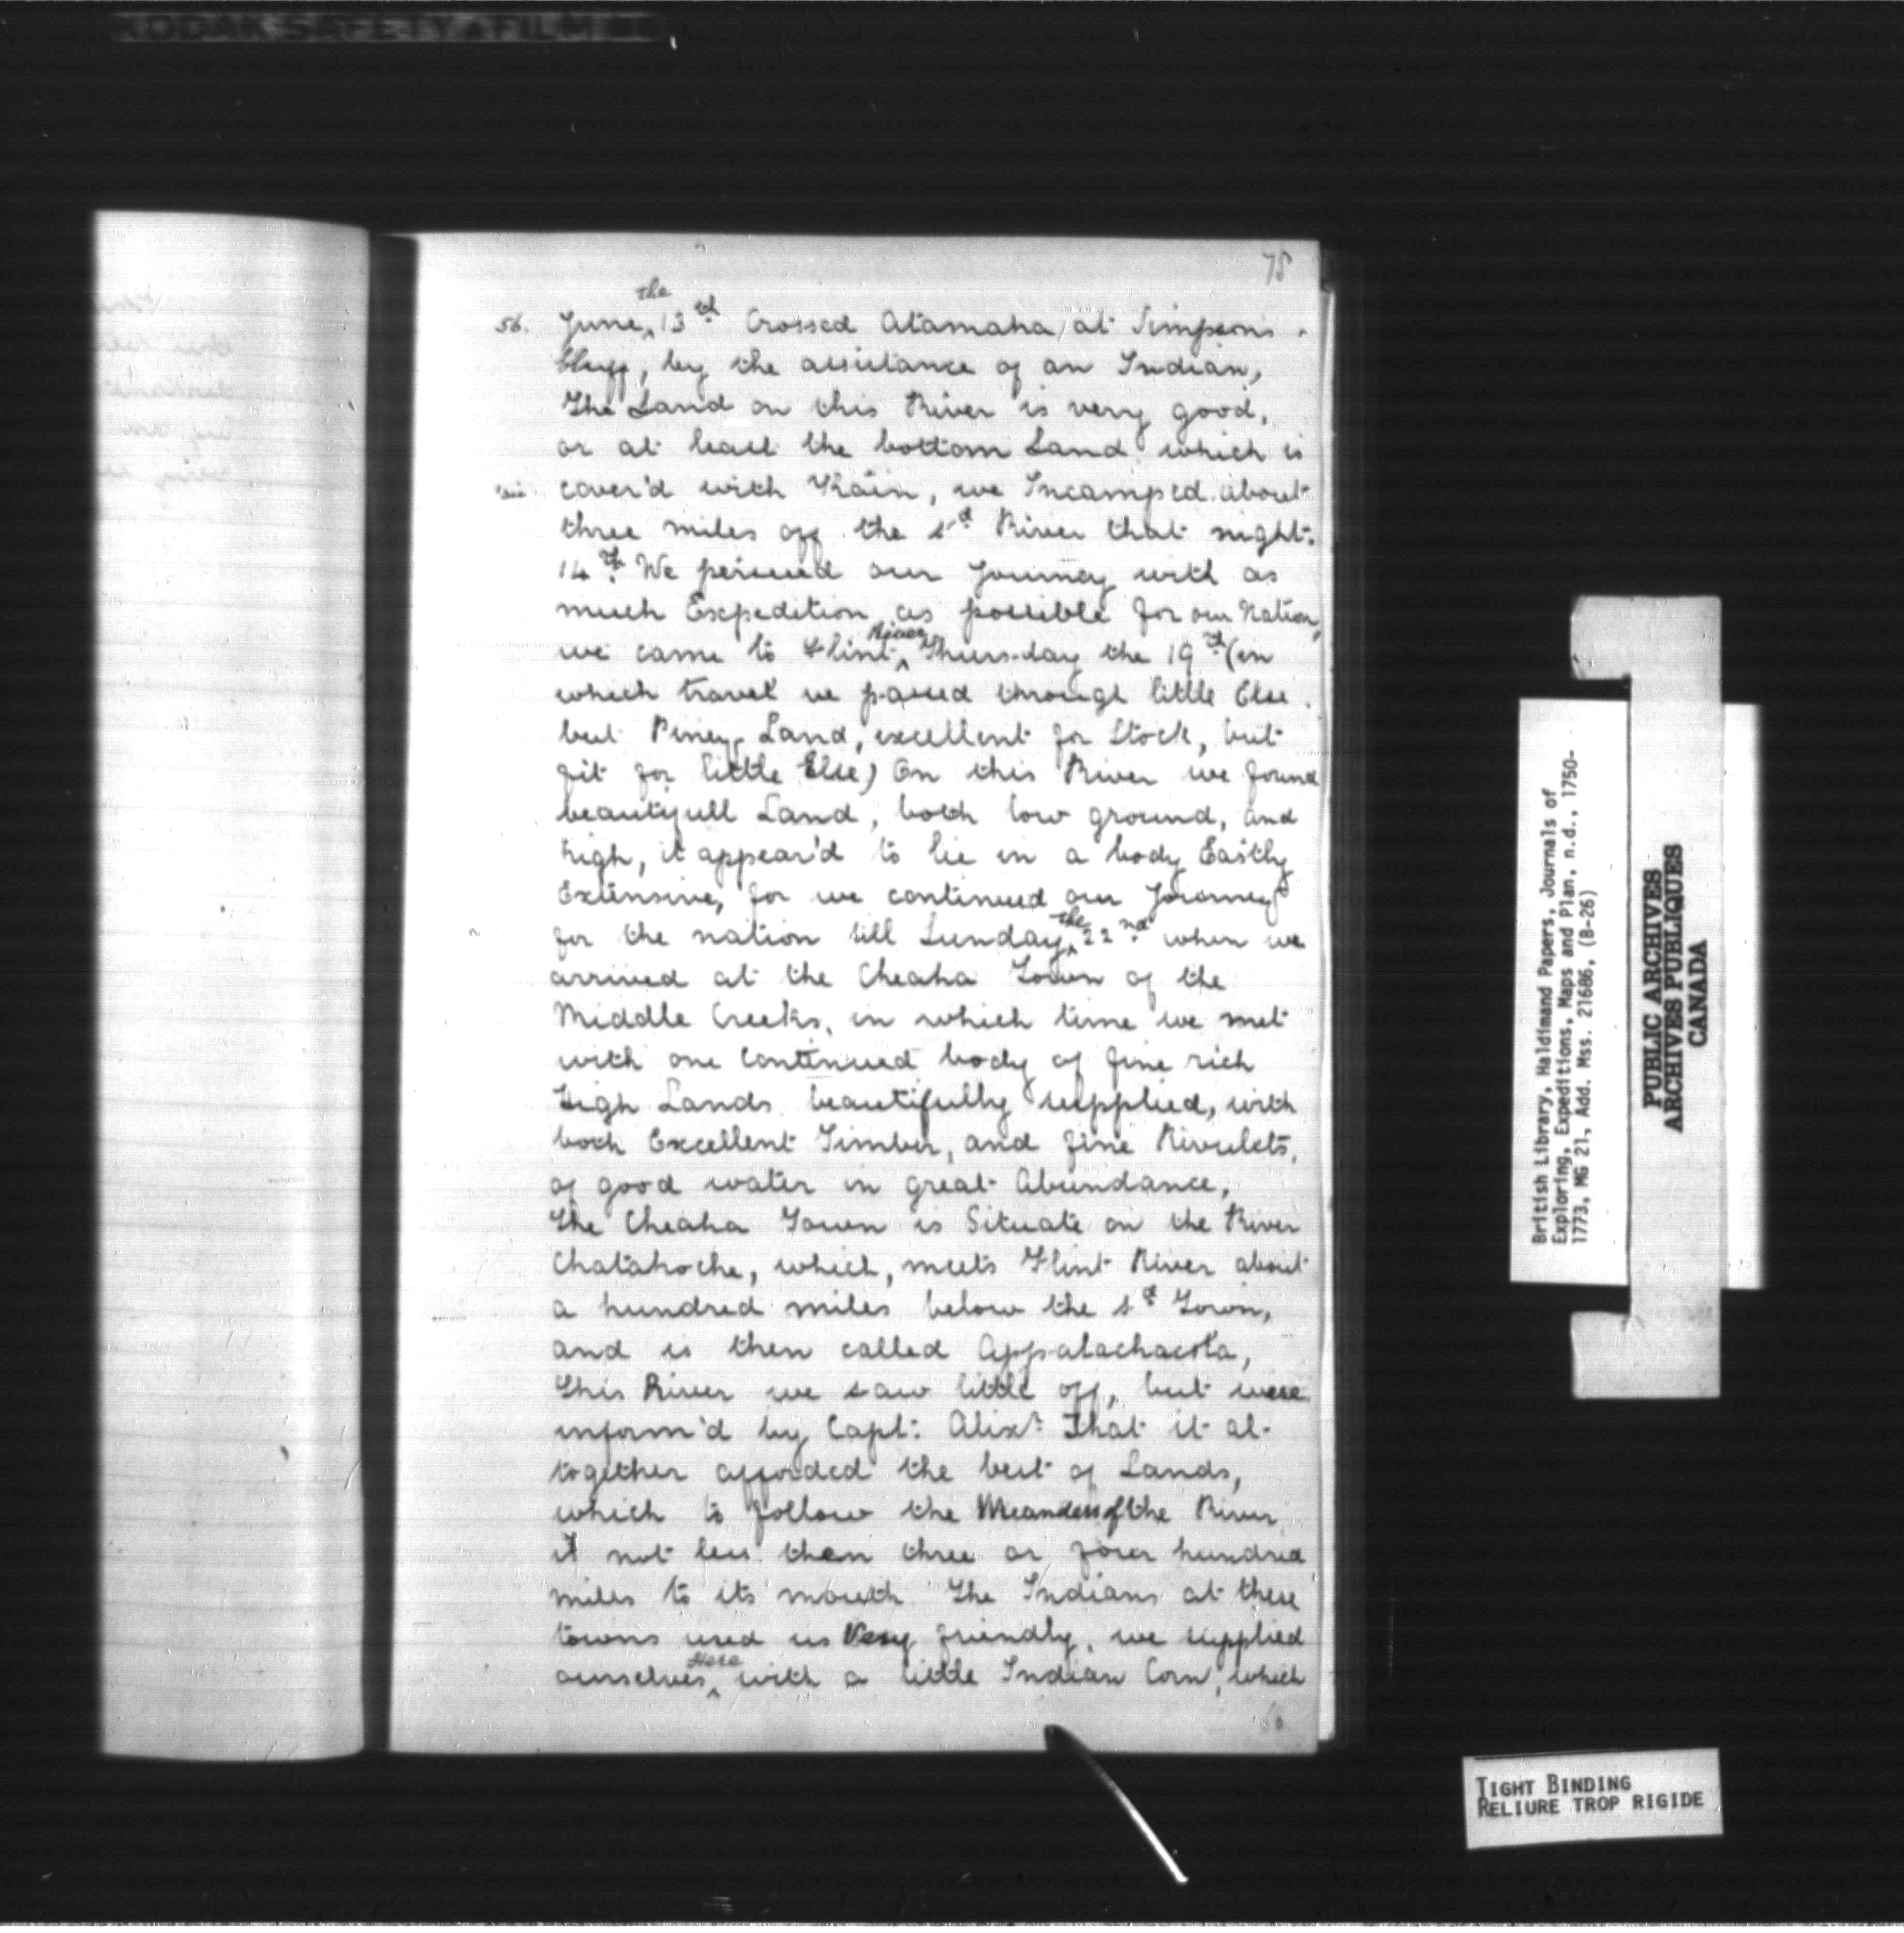 KODAK SAFETY FILM
78
56. June ^the 13th Crossed Alamaha, at Simpson's
bluff, by the assistance of an Indian,
The Land on this River is very good,
or at least the bottom Land which is
cover'd with Kain, we Incamped about
three miles off the sd River that night.
14th We persued our Journey with as
much Expedition as possible for our Nation,
we came to Flint ^River Thursday the 19th (in
which travel we passed through little Else
but Piney Land, excellent for Stock, but
fit for little Else) On this River we found
beautyfull Land, both low ground, and
high, it appear'd to lie in a body Eastly
Extensive, for we continued our Journey
for the nation till Sunday ^the 22nd when we
arrived at the Cheaha Town of the
Middle Creeks, in which time we met
with one Continued body of fine rich
High Lands beautifully supplied, with
both Excellent Timber, and fine Rivulets,
of good water in great Abundance,
The Cheaha Town is Situate on the River
Chatahoche, which, meets Flint River about
a hundred miles below the sd Town,
and is then called Appalachacola,
This River we saw little off, but were
inform'd by Capt: Alixr That it al-
together afforded the best of Lands,
which to follow the Meanders of the River
it not less then three or four hundred
miles to its mouth. The Indians at these
towns used us Very friendly, we supplied
ourselves ^Here with a little Indian Corn, which
British Library, Haldimand Papers, Journals of
Exploring, Expeditions, Maps and Plan, n.d., 1750-
1773, MG 21, Add. Mss. 21686, (B-26)
PUBLIC ARCHIVES
ARCHIVES PUBLIQUES
CANADA
TIGHT BINDING
RELIURE TROP RIGIDE